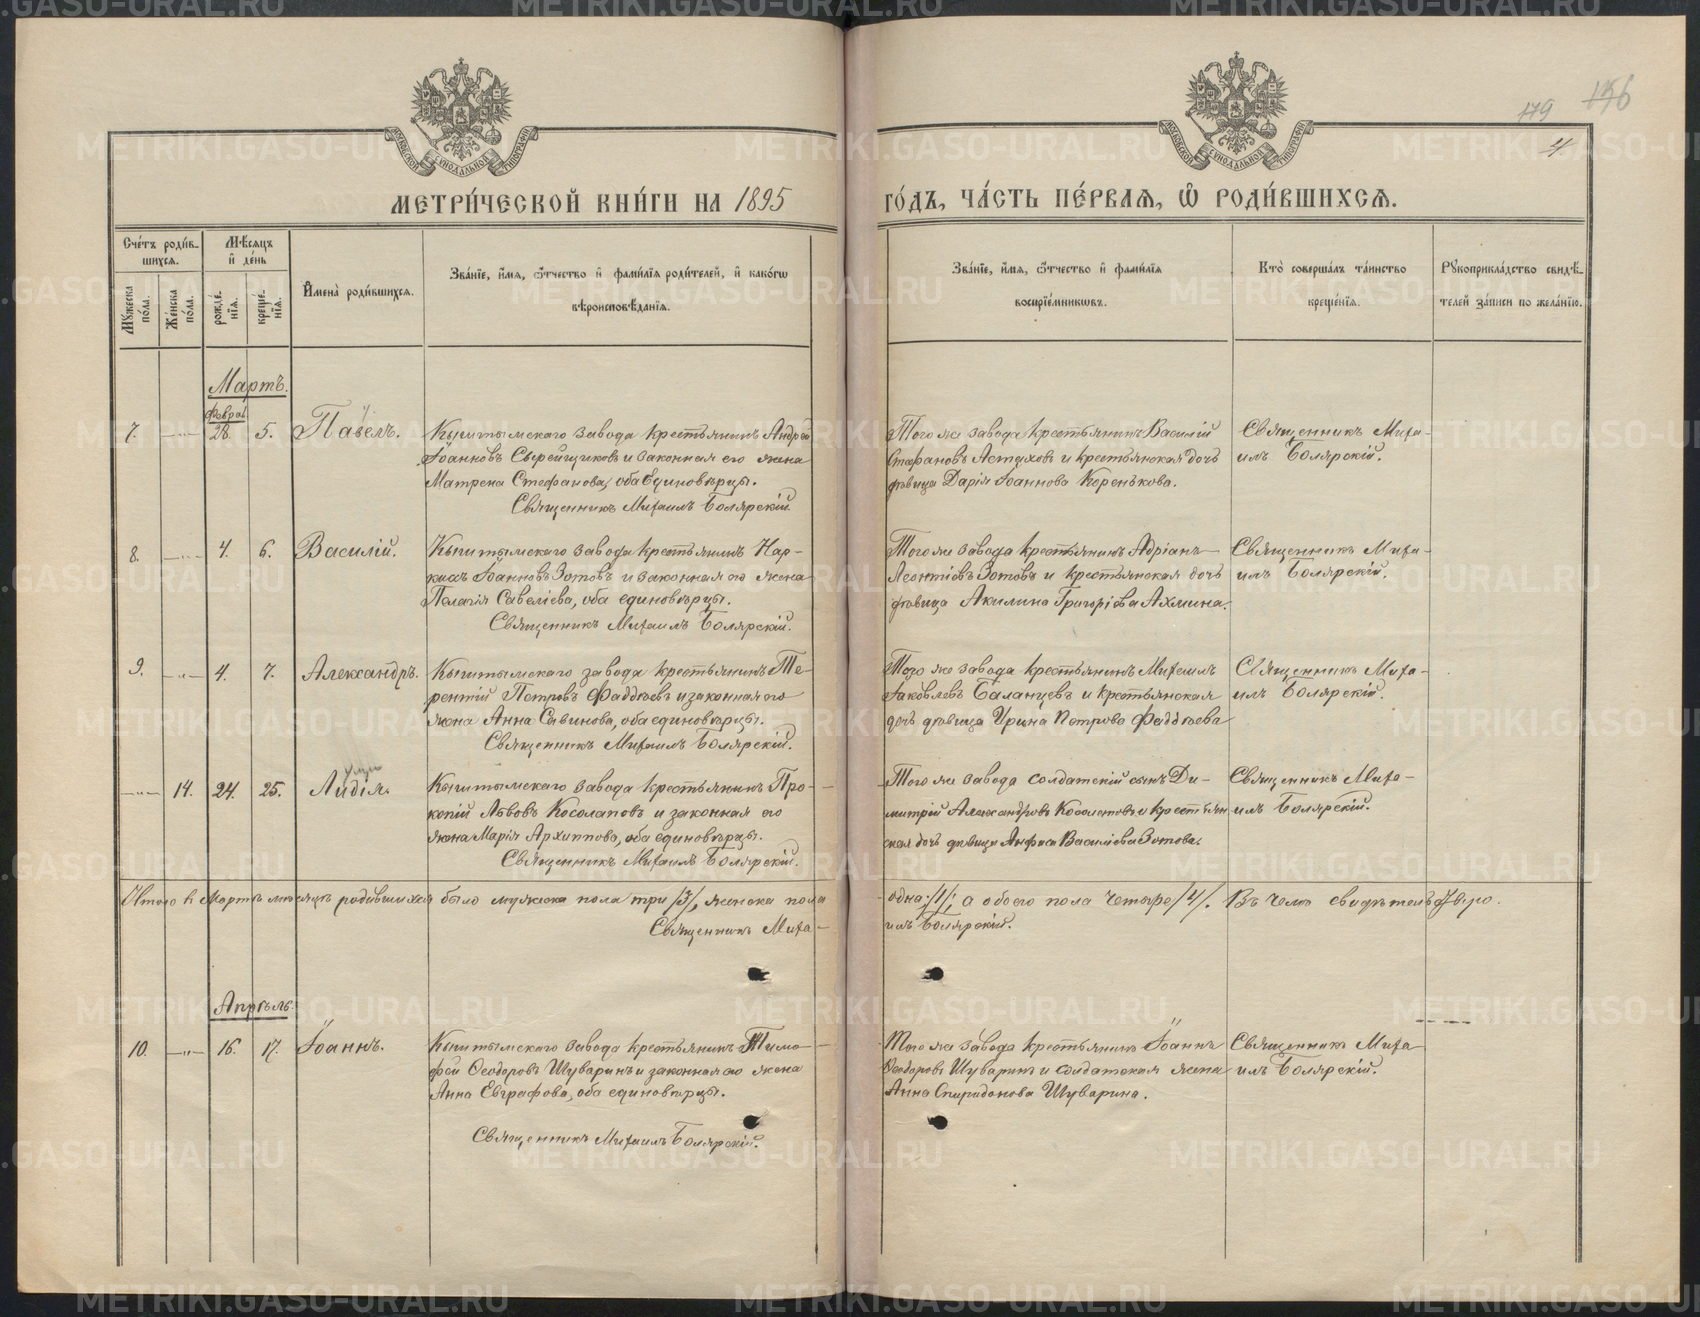 179 156
4
МОСКОВСКОЙ СѴНОДАЛЬНОЙ ТИПОГРАФИИ
МОСКОВСКОЙ СѴНОДАЛЬНОЙ ТИПОГРАФИИ
МЕТРИ́ЧЕСКОЙ КНИ́ГИ НА 1895
ГО́ДЪ, ЧА́СТЬ ПЕ́РВАѦ, Ѡ҆ РОДИ́ВШИХСѦ.
Сче́тъ роди́в-
шихсѧ.
Мꙋ́жеска по́ла.
Же́нска по́ла.
Мѣ́сѧцъ и҆ де́нь
рожде́-нїѧ.
креще́-нїѧ.
И҆мена̀ роди́вшихсѧ.
Зва́нїе, и҆́мѧ, ѻ҆́тчество и҆ фами́лїѧ роди́телей, и҆ како́гѡ
вѣроисповѣ́данїѧ.
Зва́нїе, и҆́мѧ, ѻ҆́тчество и҆ фами́лїѧ
воспрїе́мникѡвъ.
Кто̀ соверша́лъ та́инство
креще́нїѧ.
Рꙋкоприкла́дство свидѣ́-
телей за́писи по жела́нїю.
Мартъ.
Феврал.
7. —"— 28. 5. Павелъ.
Кыштымскаго завода крестьянинъ Андрей
Іоанновъ Сырейщиковъ и законная его жена
Матрена Стефанова, оба единовѣрцы.
Священникъ Михаилъ Болярскій.
Того же завода крестьянинъ Василій
Стефановъ Астаховъ и крестьянская дочь
дѣвица Дарія Іоаннова Коренькова.
Священникъ Миха-
илъ Болярскій.
8. —"— 4. 6. Василій.
Кыштымскаго завода крестьянинъ Нар-
киссъ Іоанновъ Зотовъ и законная его жена
Пелагія Савеліева, оба единовѣрцы.
Священникъ Михаилъ Болярскій.
Того же завода крестьянинъ Адріанъ
Леонтіевъ Зотовъ и крестьянская дочь
дѣвица Акилина Григоріева Ахмина.
Священникъ Миха-
илъ Болярскій.
9. —"— 4. 7. Александръ.
Кыштымскаго завода крестьянинъ Те-
рентій Петровъ Фаддѣевъ и законная его
жена Анна Савинова, оба единовѣрцы.
Священникъ Михаилъ Болярскій.
Того же завода крестьянинъ Михаилъ
Іаковлевъ Баланцевъ и крестьянская
дочь дѣвица Ирина Петрова Фаддѣева
Священникъ Миха-
илъ Болярскій.
—"— 14. 24. 25. Лидія.
Кыштымскаго завода крестьянинъ Про-
копій Львовъ Косолаповъ и законная его
жена Марія Архиппова, оба единовѣрцы.
Священникъ Михаилъ Болярскій.
Того же завода солдатскій сынъ Ди-
митрій Александровъ Косолаповъ и крестьян
ская дочь дѣвица Анфиса Василіева Зотова.
Священникъ Миха-
илъ Болярскій.
Итого въ Мартѣ мѣсяцѣ родившихся было мужеска пола три /3/, женска пола
одна /1/, а обоего пола четыре /4/. Въ чемъ свидѣтельствую.
Священникъ Миха-
илъ Болярскій.
Апрѣль.
10. —"— 16. 17. Іоаннъ.
Кыштымскаго завода крестьянинъ Тимо-
фей Ѳеодоровъ Шуваринъ и законная его жена
Анна Евграфова, оба единовѣрцы.
Священникъ Михаилъ Болярскій.
Того же завода крестьянинъ Іоаннъ
Ѳеодоровъ Шуваринъ и солдатская жена
Анна Спиридонова Шуварина.
Священникъ Миха-
илъ Болярскій.
METRIKI.GASO-URAL.RU